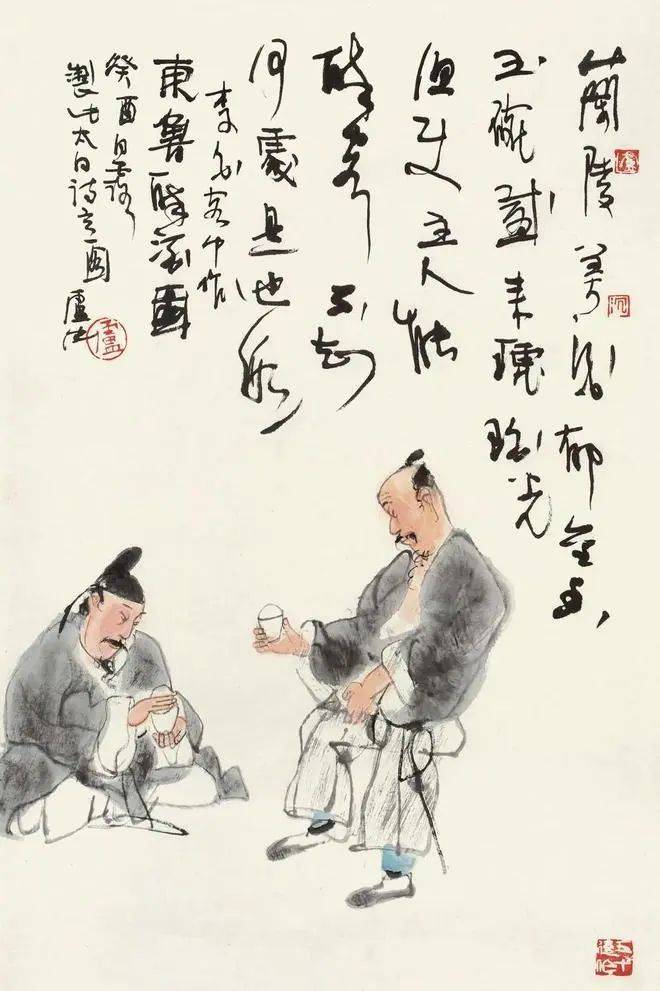 蘭陵美酒郁金香
玉碗盛来琥珀光
但使主人能
醉客不知
何處是他鄉
李白客中作
東魯醉圖
癸酉白露
製此太白詩意圖 盧沉